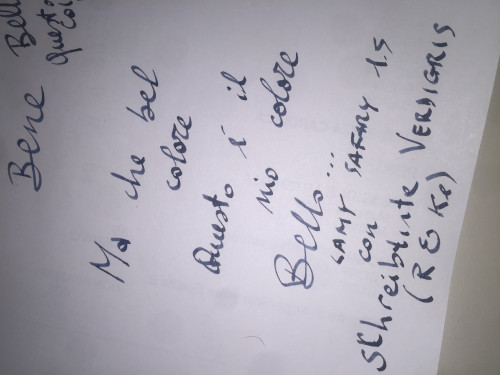 Bene Bello
questo
Ma che bel
colore
Questo è il
mio colore
Bello...
LAMY SAFARY 1.5
con
Schreibtinte VERDIGRIS
(R & Ke)